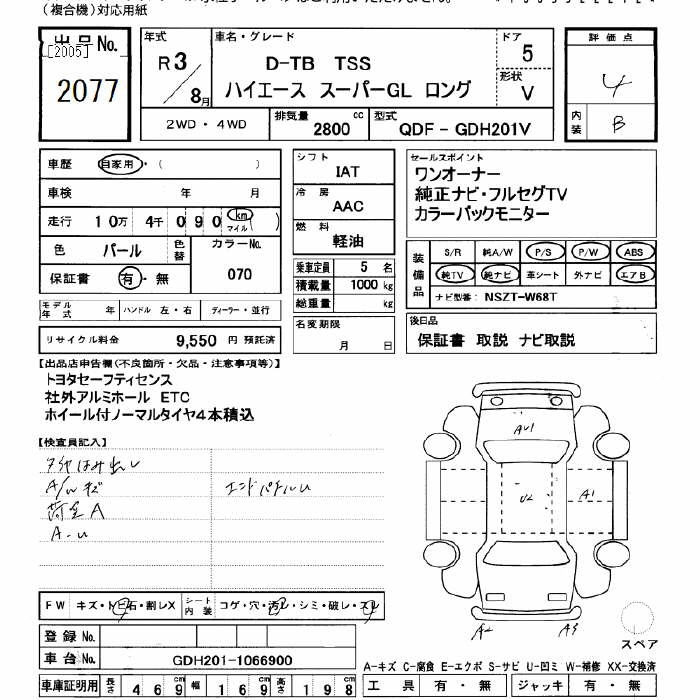 (複合機)対応用紙
出品No.
[2005]
2077
年式
R3/8月
車名・グレード
D-TB TSS
ハイエース スーパーGL ロング
ドア
5
形状
V
評価点
4
内装
B
2WD・4WD
排気量
2800
cc
型式
QDF - GDH201V
車歴
自家用・( )
車検
年 月
走行
10万 4千 090
km
マイル
( )
色
パール
色替
カラーNo.
070
保証書
有・無
モデル年式
年
ハンドル 左・右
ディーラー・並行
リサイクル料金
9,550 円 預託済
シフト
IAT
冷房
AAC
燃料
軽油
乗車定員 5 名
積載量 1000 kg
総重量 kg
名変期限
月 日
セールスポイント
ワンオーナー
純正ナビ・フルセグTV
カラーバックモニター
装備品
S/R 純A/W P/S P/W ABS
純TV 純ナビ 革シート 外ナビ エアB
ナビ型番: NSZT-W68T
後日品
保証書 取説 ナビ取説
【出品店申告欄(不良箇所・欠品・注意事項等)】
トヨタセーフティセンス
社外アルミホール ETC
ホイール付ノーマルタイヤ4本積込
【検査員記入】
タイヤはみ出し
A/Wキズ
荷室A
A-U
エンドパネルU
AU1
U2
A1
A2
A3
スペア
FW
キズ・トビ石・割レX
シート内装
コゲ・穴・汚レ・シミ・破レ・スレ
登録No.
車台No.
GDH201-1066900
車庫証明用
長さ 469 cm
幅 169 cm
高さ 198 cm
A-キズ C-腐食 E-エクボ S-サビ U-凹ミ W-補修 XX-交換済
工具 有・無
ジャッキ 有・無